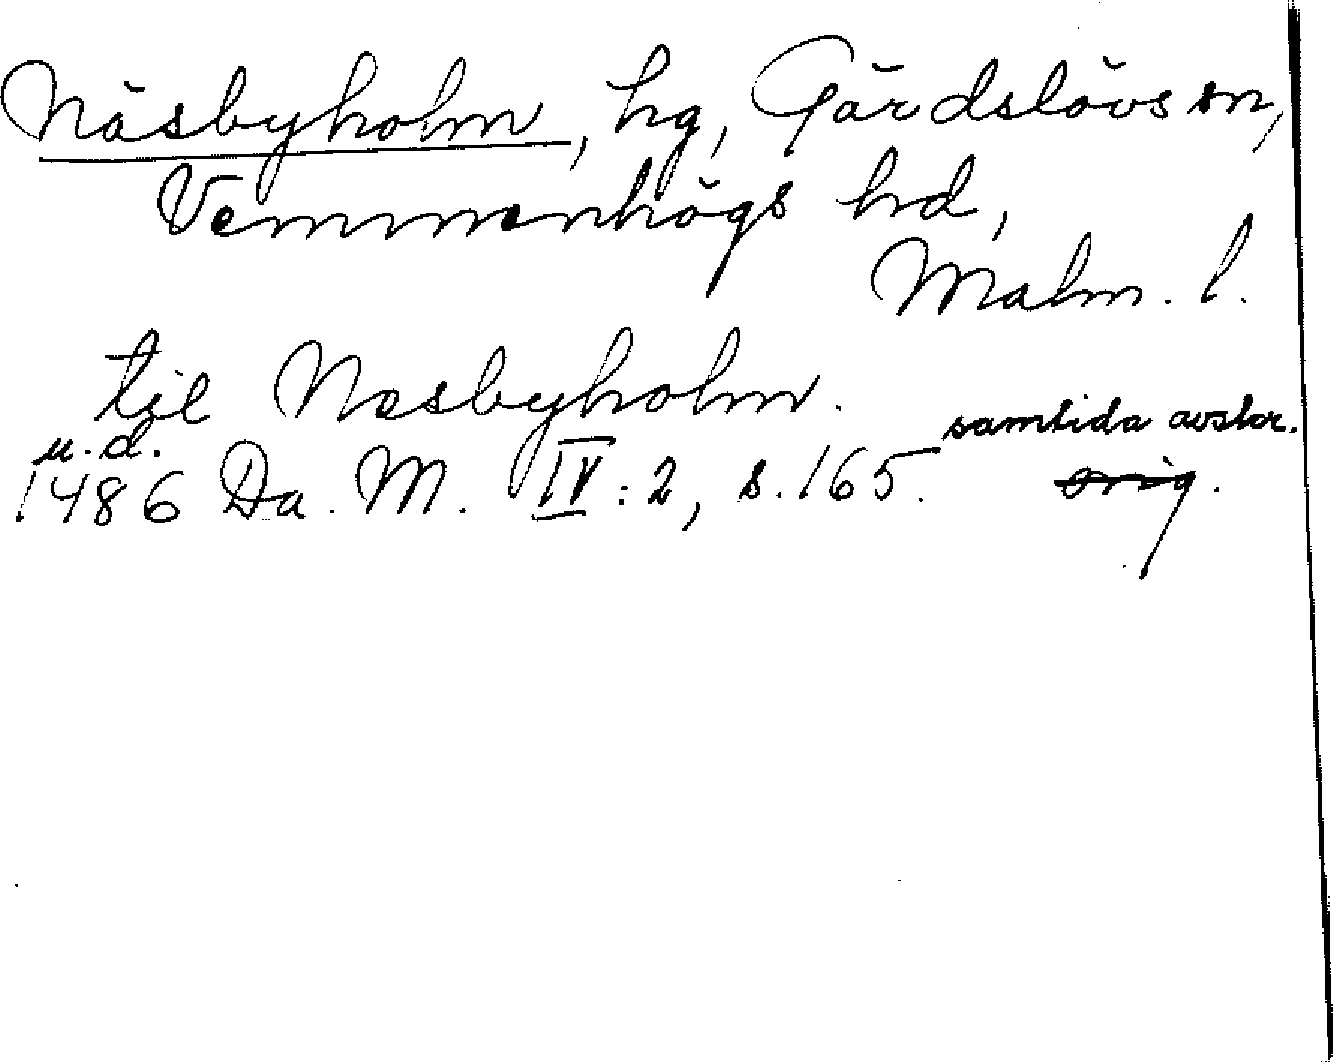 Näsbyholm, hg, Gärdslövs sn,
Vemmenhögs hd,
Malm. l.
til Nesbyholm.
samtida avskr.
u.d.
1486 Da. M. IV:2, s. 165. orig.